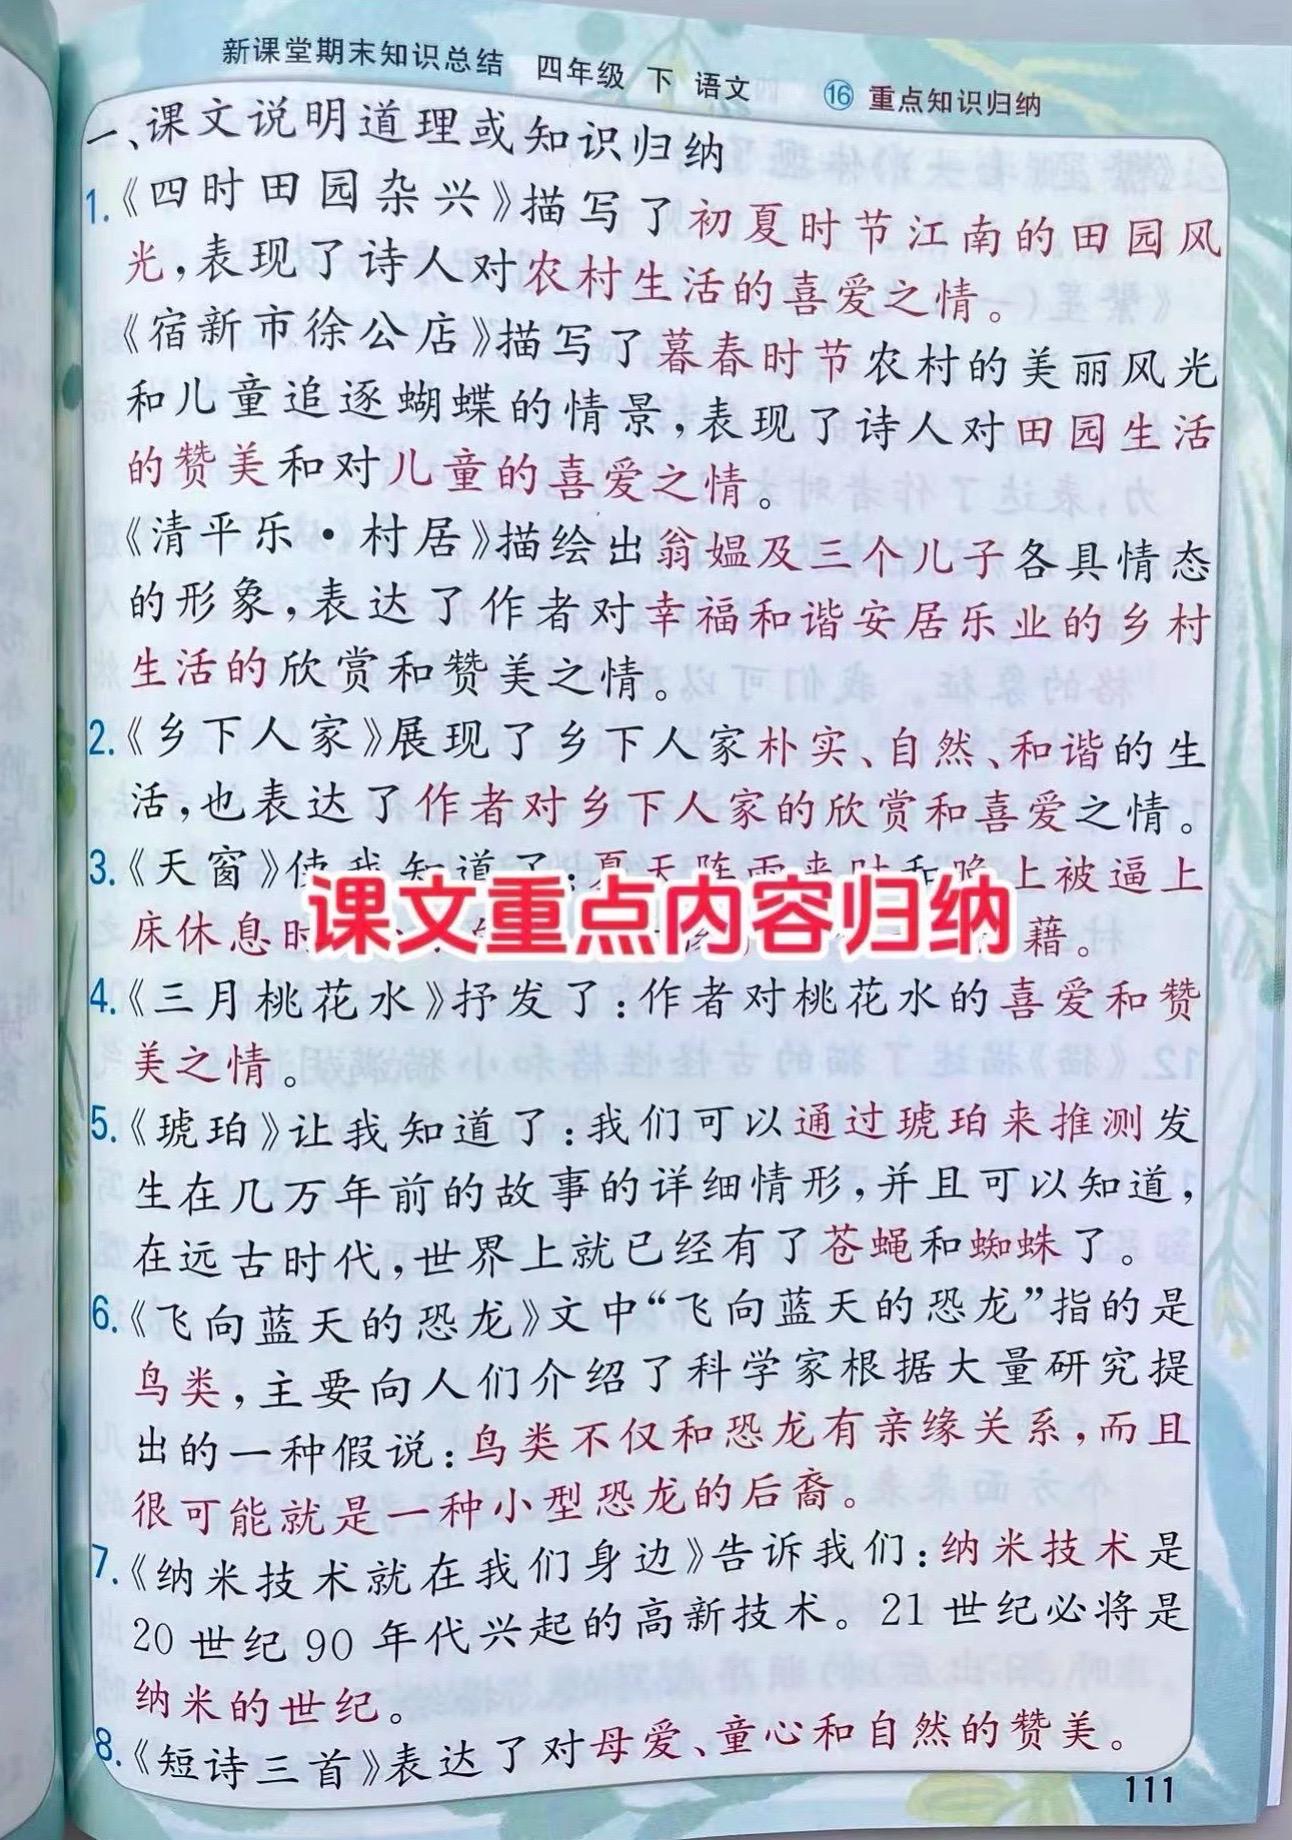 新课堂期末知识总结 四年级 下 语文 ⑯ 重点知识归纳
一、课文说明道理或知识归纳
1.《四时田园杂兴》描写了初夏时节江南的田园风
光,表现了诗人对农村生活的喜爱之情。
《宿新市徐公店》描写了暮春时节农村的美丽风光
和儿童追逐蝴蝶的情景,表现了诗人对田园生活
的赞美和对儿童的喜爱之情。
《清平乐·村居》描绘出翁媪及三个儿子各具情态
的形象,表达了作者对幸福和谐安居乐业的乡村
生活的欣赏和赞美之情。
2.《乡下人家》展现了乡下人家朴实、自然、和谐的生
活,也表达了作者对乡下人家的欣赏和喜爱之情。
3.《天窗》使我知道了:夏天阵雨来时和晚上被逼上
床休息时 藉。
课文重点内容归纳
4.《三月桃花水》抒发了:作者对桃花水的喜爱和赞
美之情。
5.《琥珀》让我知道了:我们可以通过琥珀来推测发
生在几万年前的故事的详细情形,并且可以知道,
在远古时代,世界上就已经有了苍蝇和蜘蛛了。
6.《飞向蓝天的恐龙》文中“飞向蓝天的恐龙”指的是
鸟类,主要向人们介绍了科学家根据大量研究提
出的一种假说:鸟类不仅和恐龙有亲缘关系,而且
很可能就是一种小型恐龙的后裔。
7.《纳米技术就在我们身边》告诉我们:纳米技术是
20世纪90年代兴起的高新技术。21世纪必将是
纳米的世纪。
8.《短诗三首》表达了对母爱、童心和自然的赞美。
111